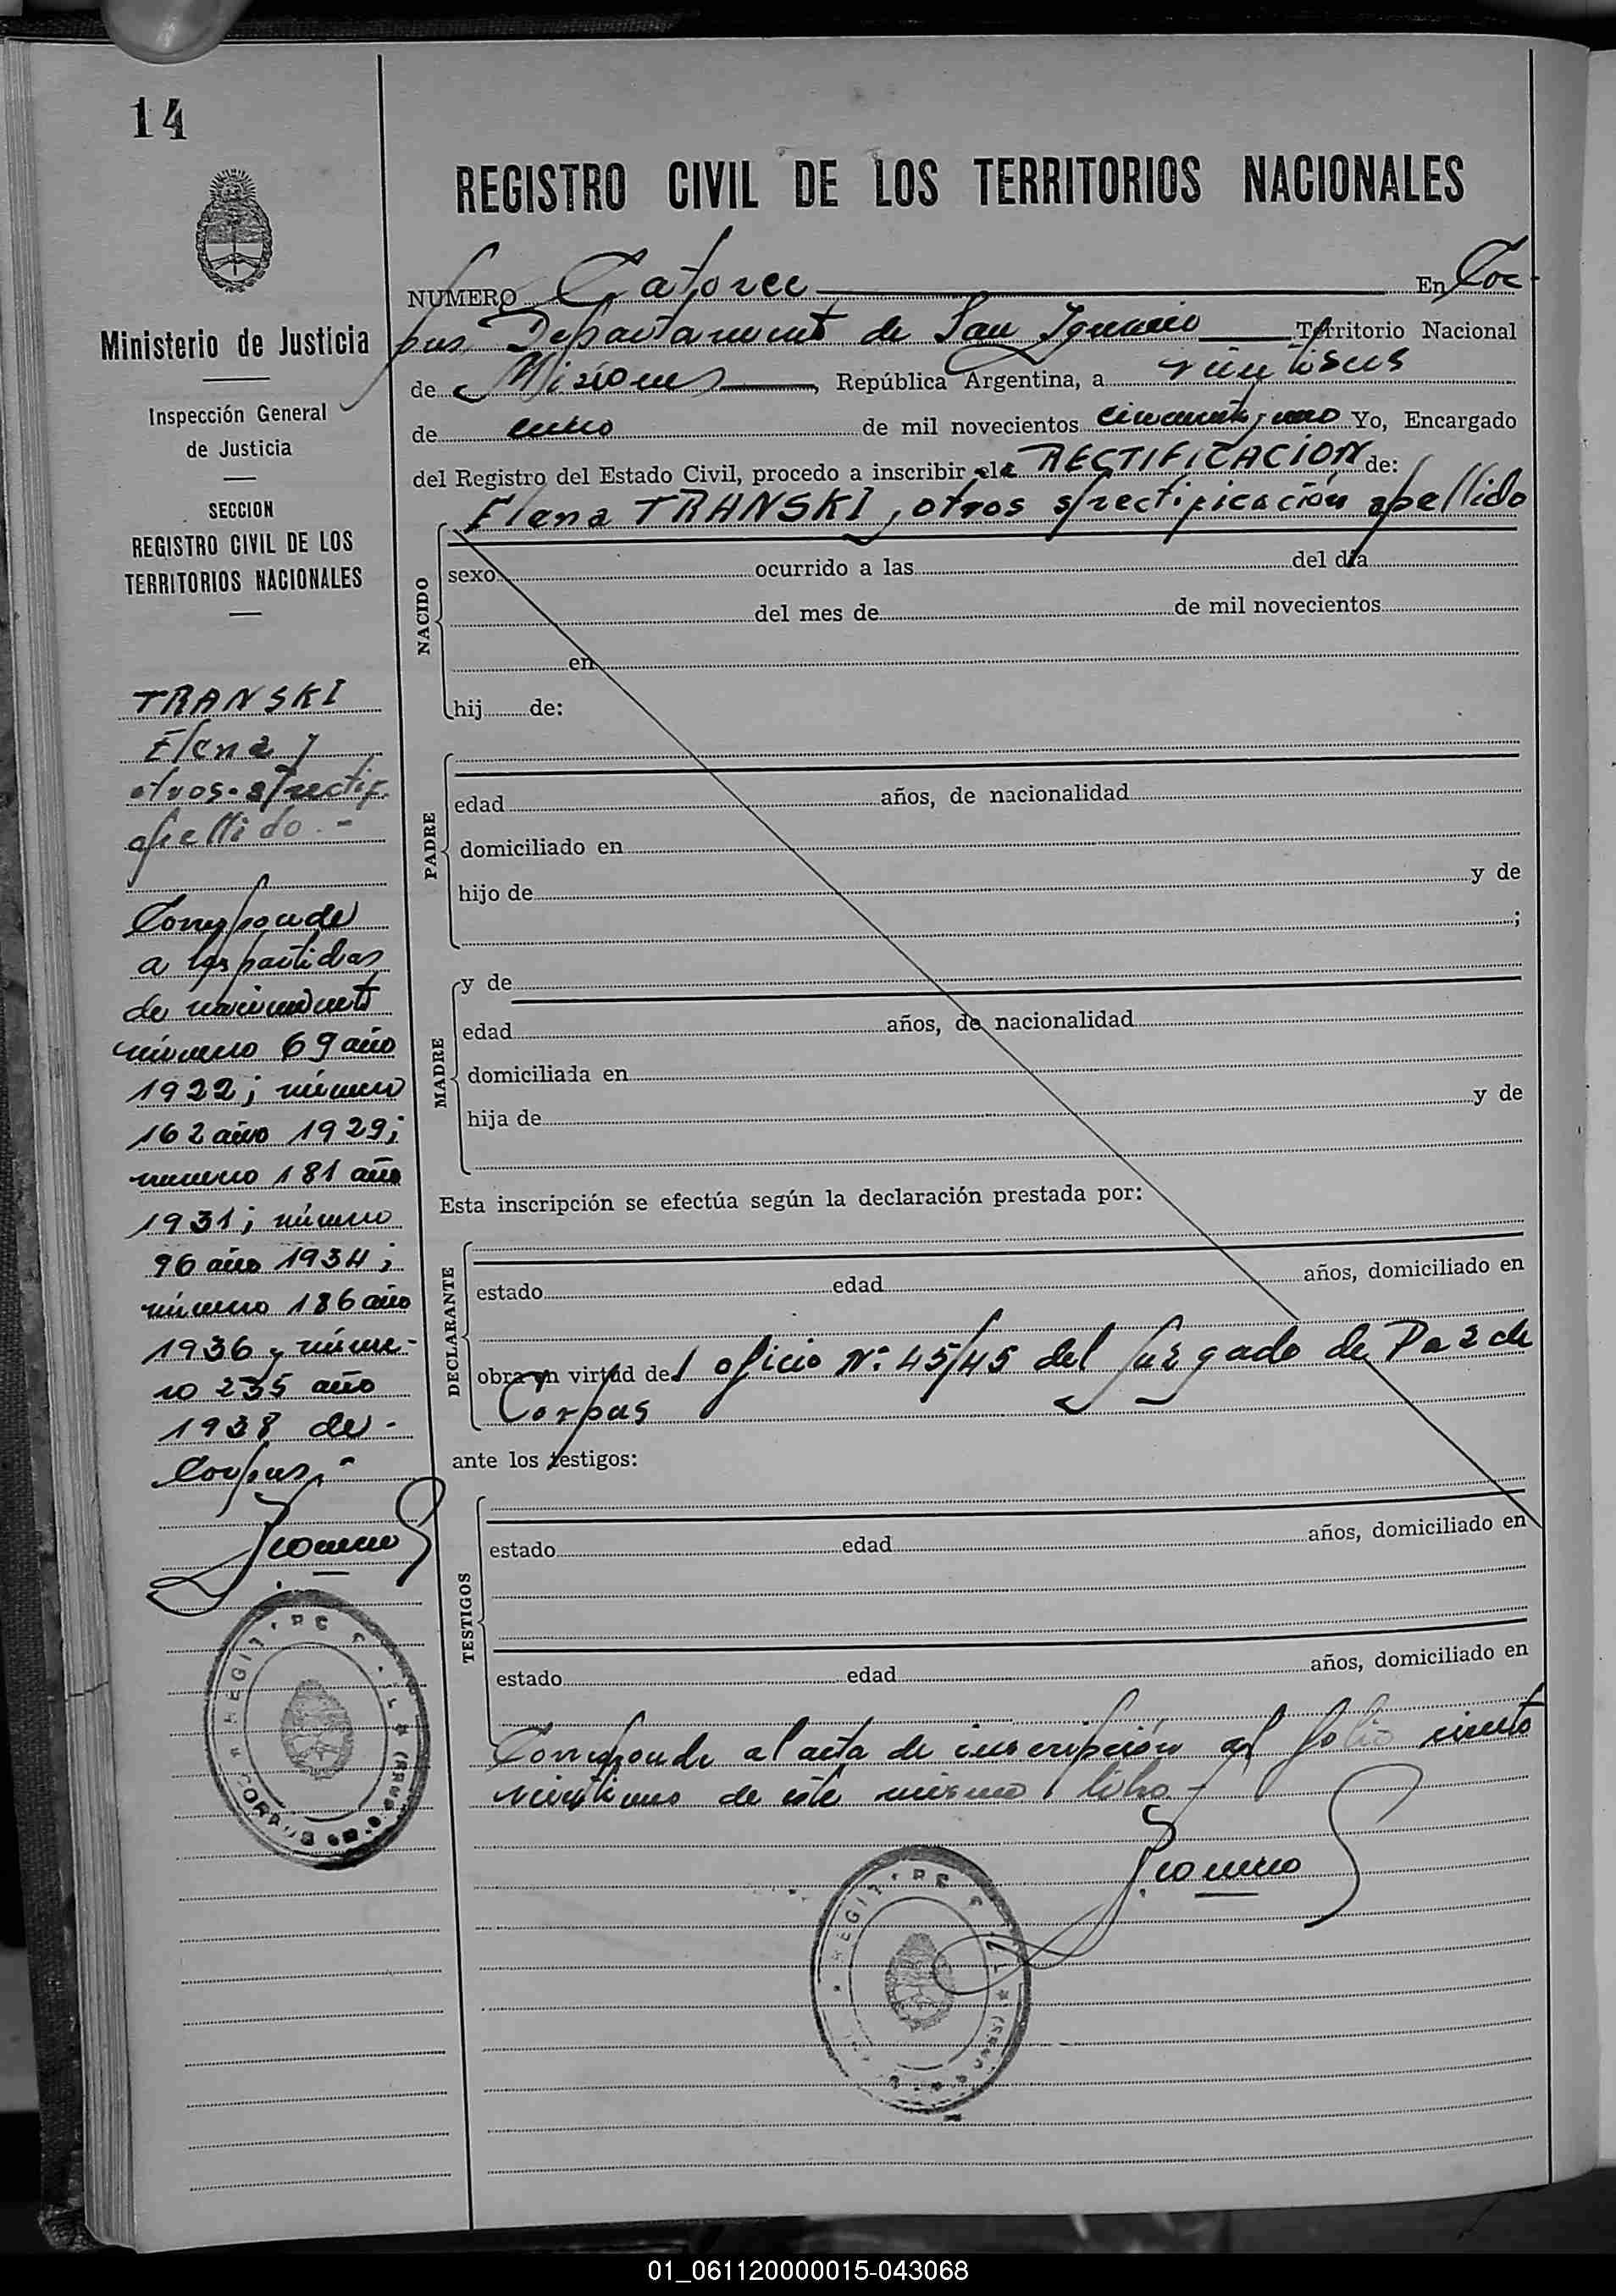 14
REGISTRO CIVIL DE LOS TERRITORIOS NACIONALES
NUMERO Catorce En Cor-
pus Departamento de San Ignacio Territorio Nacional
de Misiones, República Argentina, a veintiseis
de enero de mil novecientos cincuenta y uno Yo, Encargado
del Registro del Estado Civil, procedo a inscribir el a RECTIFICACION de:
Elena TRANSKI y otros s/rectificación apellido
NACIDO
sexo ocurrido a las del día
del mes de de mil novecientos
en
hij de:
PADRE
edad años, de nacionalidad
domiciliado en
hijo de y de
;
MADRE
y de
edad años, de nacionalidad
domiciliada en
hija de y de
Esta inscripción se efectúa según la declaración prestada por:
DECLARANTE
estado edad años, domiciliado en
obra en virtud del oficio Nº 45/45 del Juzgado de Paz de
Corpus
ante los testigos:
TESTIGOS
estado edad años, domiciliado en
estado edad años, domiciliado en
Corresponde al acta de inscripción al folio ciento
veintiuno de este mismo libro.-
Ministerio de Justicia
Inspección General
de Justicia
SECCION
REGISTRO CIVIL DE LOS
TERRITORIOS NACIONALES
TRANSKI
Elena y
otros-s/rectif.
apellido.-
Corresponde
a las partidas
de nacimiento
número 69 año
1922; número
162 año 1929;
numero 181 año
1931; número
96 año 1934;
número 186 año
1936 y núme-
ro 235 año
1938 de-
Corpus.-
REGIT
CORPUS
REGIT
01_061120000015-043068